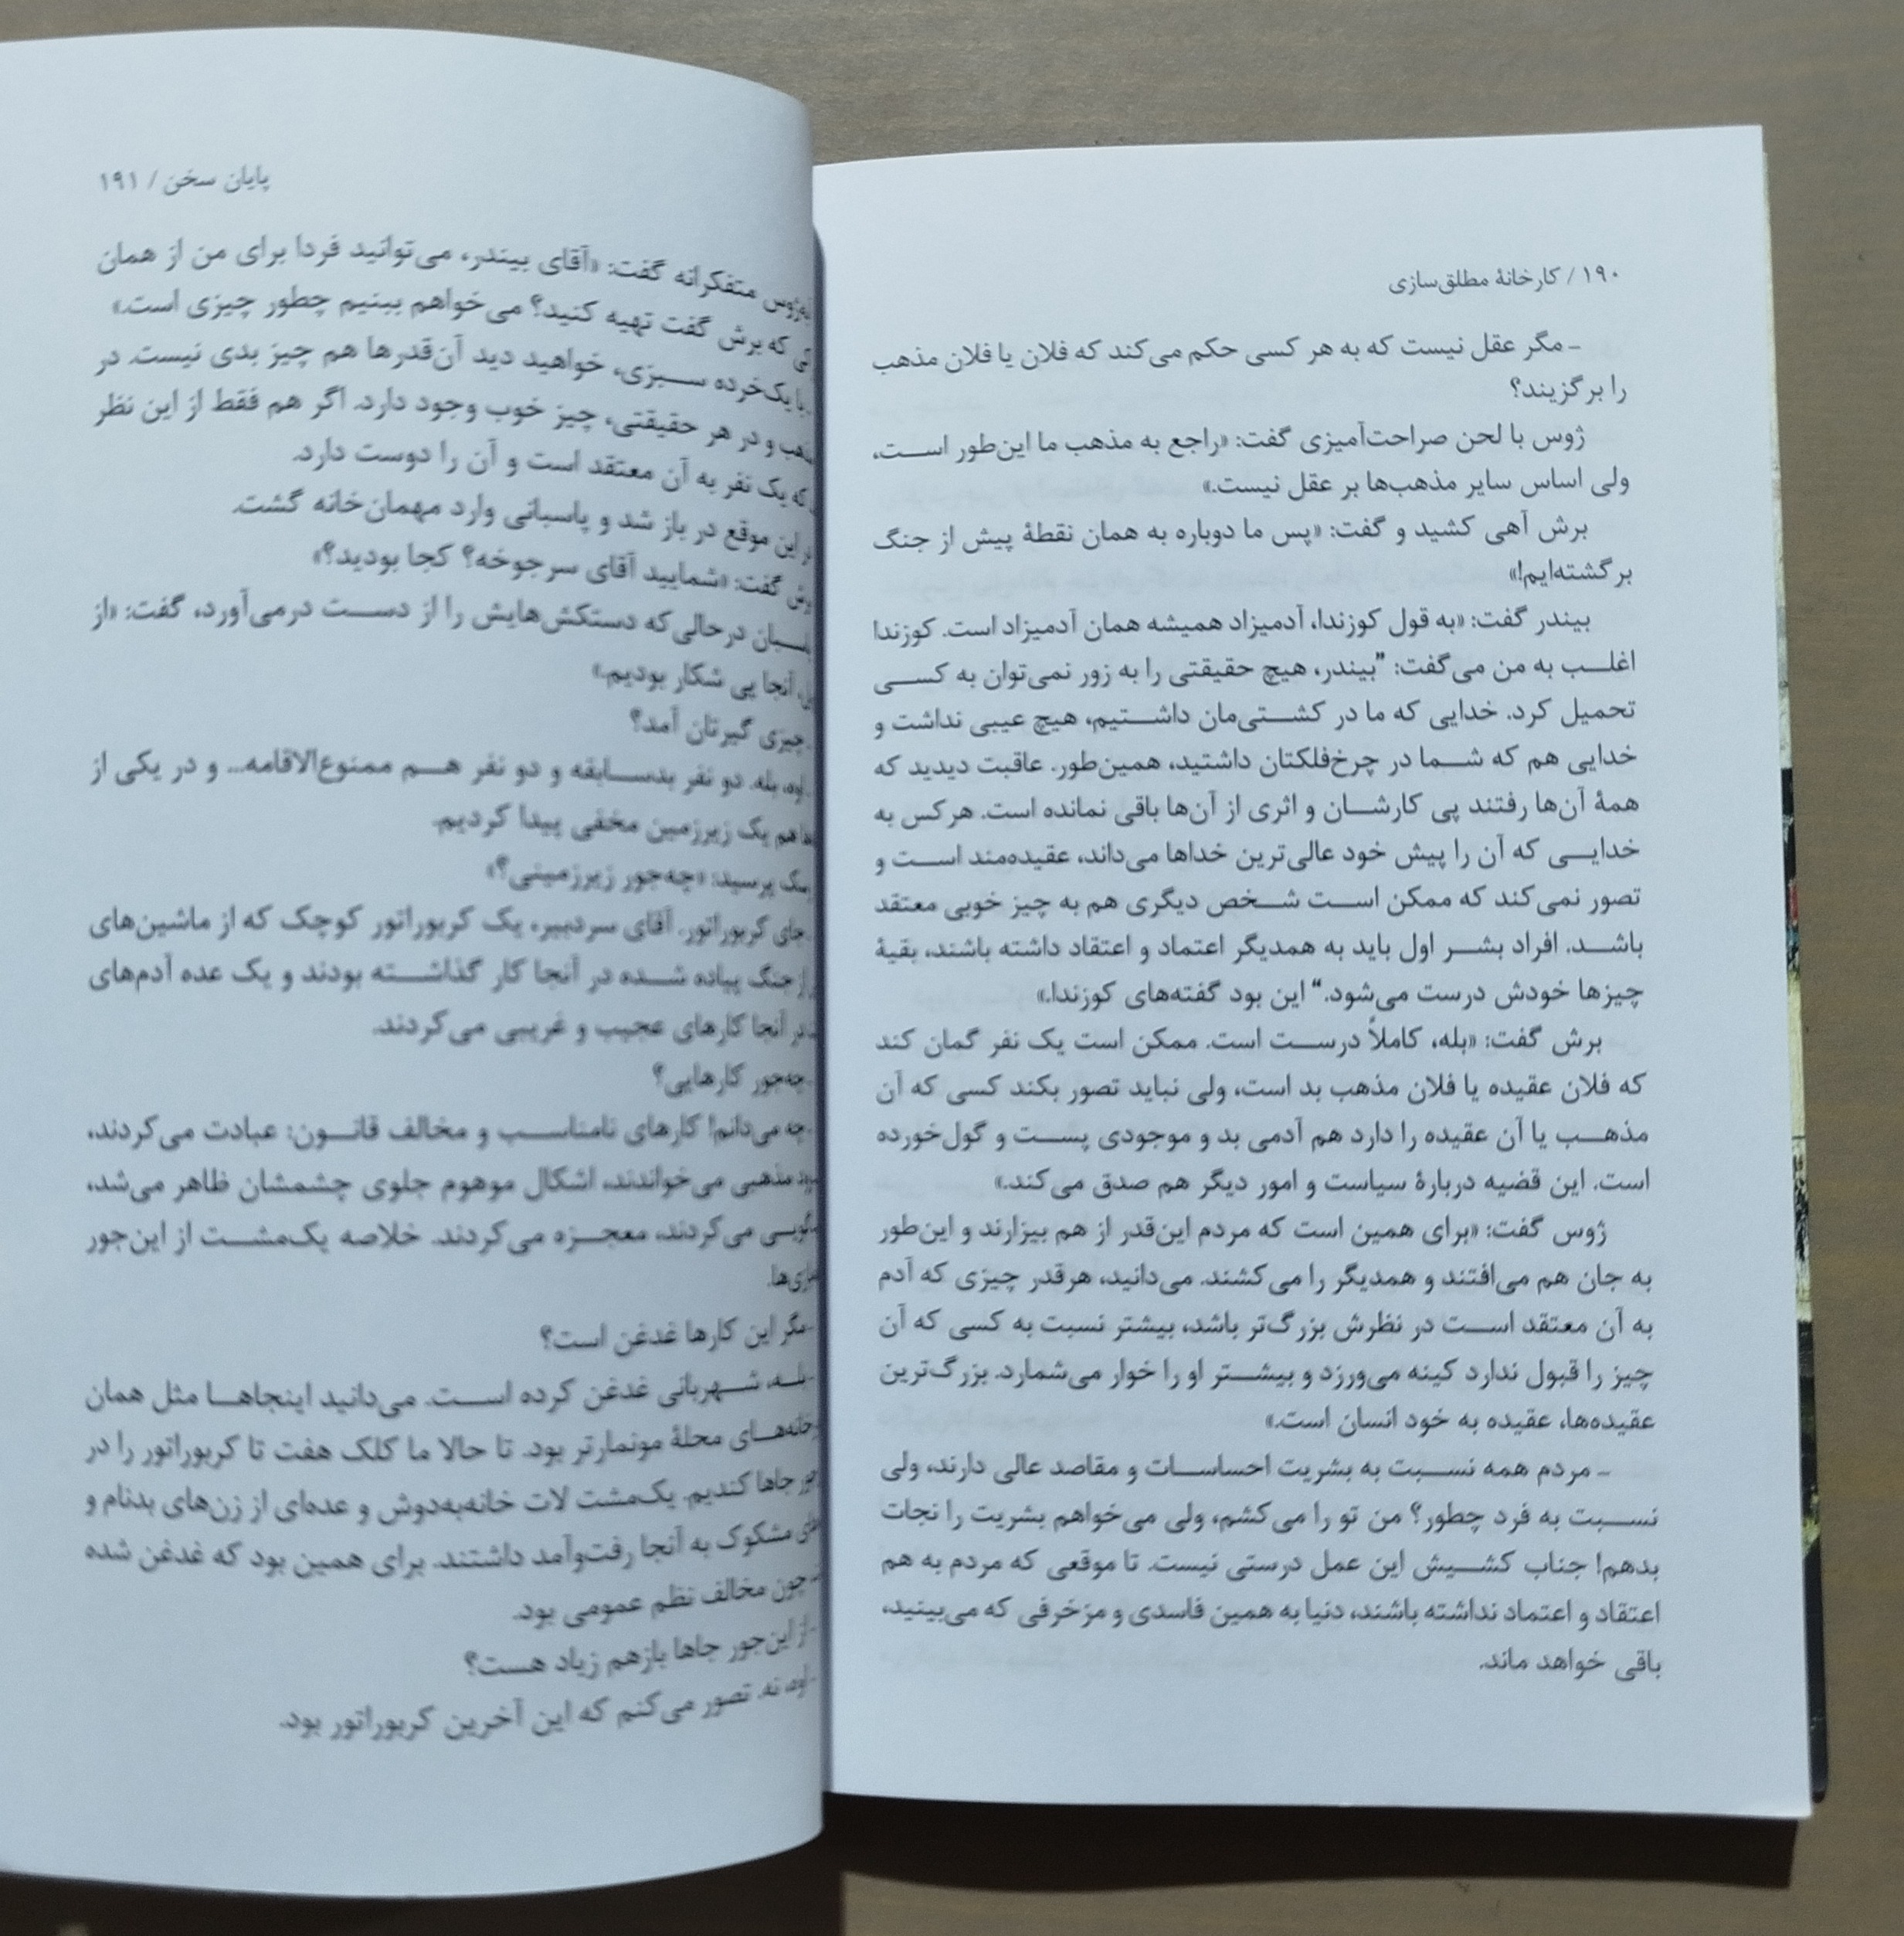 ۱۹۰ / کارخانهٔ مطلق‌سازی
ـ مگر عقل نیست که به هر کسی حکم می‌کند که فلان یا فلان مذهب
را برگزیند؟
ژوس با لحن صراحت‌آمیزی گفت: «راجع به مذهب ما این‌طور اســت،
ولی اساس سایر مذهب‌ها بر عقل نیست.»
برش آهی کشید و گفت: «پس ما دوباره به همان نقطهٔ پیش از جنگ
برگشته‌ایم!»
بیندر گفت: «به قول کوزندا، آدمیزاد همیشه همان آدمیزاد است. کوزندا
اغلــب به من می‌گفت: "بیندر، هیچ حقیقتی را به زور نمی‌توان به کســی
تحمیل کرد. خدایی که ما در کشــتی‌مان داشــتیم، هیچ عیبی نداشت و
خدایی هم که شــما در چرخ‌فلکتان داشتید، همین‌طور. عاقبت دیدید که
همهٔ آن‌ها رفتند پی کارشــان و اثری از آن‌ها باقی نمانده است. هرکس به
خدایــی که آن را پیش خود عالی‌ترین خداها می‌داند، عقیده‌مند اســت و
تصور نمی‌کند که ممکن اســت شــخص دیگری هم به چیز خوبی معتقد
باشــد. افراد بشــر اول باید به همدیگر اعتماد و اعتقاد داشته باشند، بقیهٔ
چیزها خودش درست می‌شود." این بود گفته‌های کوزندا.»
برش گفت: «بله، کاملاً درســت است. ممکن است یک نفر گمان کند
که فلان عقیده یا فلان مذهب بد است، ولی نباید تصور بکند کسی که آن
مذهــب یا آن عقیده را دارد هم آدمی بد و موجودی پســت و گول‌خورده
است. این قضیه دربارهٔ سیاست و امور دیگر هم صدق می‌کند.»
ژوس گفت: «برای همین است که مردم این‌قدر از هم بیزارند و این‌طور
به جان هم می‌افتند و همدیگر را می‌کشند. می‌دانید، هرقدر چیزی که آدم
به آن معتقد اســت در نظرش بزرگ‌تر باشد، بیشتر نسبت به کسی که آن
چیز را قبول ندارد کینه می‌ورزد و بیشــتر او را خوار می‌شمارد. بزرگ‌ترین
عقیده‌ها، عقیده به خود انسان است.»
ـ مردم همه نســبت به بشریت احساســات و مقاصد عالی دارند، ولی
نســبت به فرد چطور؟ من تو را می‌کشم، ولی می‌خواهم بشریت را نجات
بدهم! جناب کشــیش این عمل درستی نیست. تا موقعی که مردم به هم
اعتقاد و اعتماد نداشته باشند، دنیا به همین فاسدی و مزخرفی که می‌بینید،
باقی خواهد ماند.
پایان سخن / ۱۹۱
متفکرانه گفت: «آقای بیندر، می‌توانید فردا برای من از همان
که برش گفت تهیه کنید؟ می‌خواهم ببینیم چطور چیزی است.»
ـ با یک‌خرده ســبزی، خواهید دید آن‌قدرها هم چیز بدی نیست. در
و در هر حقیقتی، چیز خوب وجود دارد. اگر هم فقط از این نظر
که یک نفر به آن معتقد است و آن را دوست دارد.
این موقع در باز شد و پاسبانی وارد مهمان‌خانه گشت.
گفت: «شمایید آقای سرجوخه؟ کجا بودید؟»
درحالی‌که دستکش‌هایش را از دســت درمی‌آورد، گفت: «از
آنجا پی شکار بودیم.»
ـ چیزی گیرتان آمد؟
ـ اوه، بله. دو نفر بدســابقه و دو نفر هــم ممنوع‌الاقامه... و در یکی از
هم یک زیرزمین مخفی پیدا کردیم.
پرسید: «چه‌جور زیرزمینی؟»
ـ جای کربوراتور. آقای سردبیر، یک کربوراتور کوچک که از ماشین‌های
از جنگ پیاده شــده در آنجا کار گذاشــته بودند و یک عده آدم‌های
در آنجا کارهای عجیب و غریبی می‌کردند.
ـ چه‌جور کارهایی؟
ـ چه می‌دانم! کارهای نامناســب و مخالف قانــون: عبادت می‌کردند،
مذهبی می‌خواندند، اشکال موهوم جلوی چشمشان ظاهر می‌شد،
می‌کردند، معجــزه می‌کردند. خلاصه یک‌مشــت از این‌جور
ـ مگر این کارها غدغن است؟
ـ بلــه، شــهربانی غدغن کرده اســت. می‌دانید اینجاهــا مثل همان
محلهٔ مونمارتر بود. تا حالا ما کلک هفت تا کربوراتور را در
جاها کندیم. یک‌مشت لات خانه‌به‌دوش و عده‌ای از زن‌های بدنام و
مشکوک به آنجا رفت‌وآمد داشتند. برای همین بود که غدغن شده
چون مخالف نظم عمومی بود.
ـ از این‌جور جاها بازهم زیاد هســت؟
ـ اوه، نه. تصور می‌کنم که این آخرین کربوراتور بود.